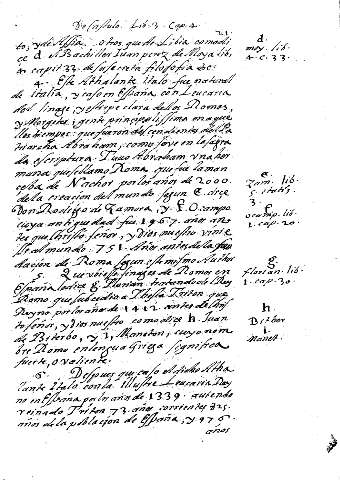 De Castulo. Lib. 3. Cap. 4.
21
to, y de Assia, otros que de Libia como di
ce d el Bachiller Juan perez de Moya lib.
4. capit 33. de la secreta filosofia &c.
4. Este Athalante italo fue natural
de italia, y caso en España con Leucaria
del linage, y estirpe clara de los Romos,
y Morgetes; gente principalissima en aque
llos tiempos: que fueron descendientes del Pa
triarcha Abraham; como se ve en la sagra
da escriptura. Tuvo Abraham una her
mana que se llamo Roma, que fue la man
ceba de Nachor por los años de 2000.
de la creacion del mundo segun e dice
Don Rodrigo de Zamora, y f Ocampo
cuya antiguedad fue 1967. años an
tes que Christo señor, y dios nuestro vinie
se al mundo: 751 Años antes de la fun
dacion de Roma segun este mismo Author
5. Que viesse linages de Romos en
España lo dice g Florian, tratando de Rey
Romo que subcedio a Thesta Triton que
Reyno por los años de 1412 antes de Chris
to señor, y dios nuestro como dice h. Juan
de Biterbo, y i. Maneton; cuyo nom
bre Romo en lengua Griega significa
fuerte, o valiente.
6. Despues que caso el dicho Atha
lante Italo con la illustre Leucaria Rey
no en España por los años de 1339. aviendo
reinado Triton 73. años corrientes 825.
años de la poblacion de España, y 976
años
d.
moy. lib.
4. c. 33.
e.
Zam. lib.
3. titul.
3.
f.
ocamp. lib.
1. cap. 20.
g.
florian. lib.
1. cap. 30.
h.
Bither
i.
Manet.